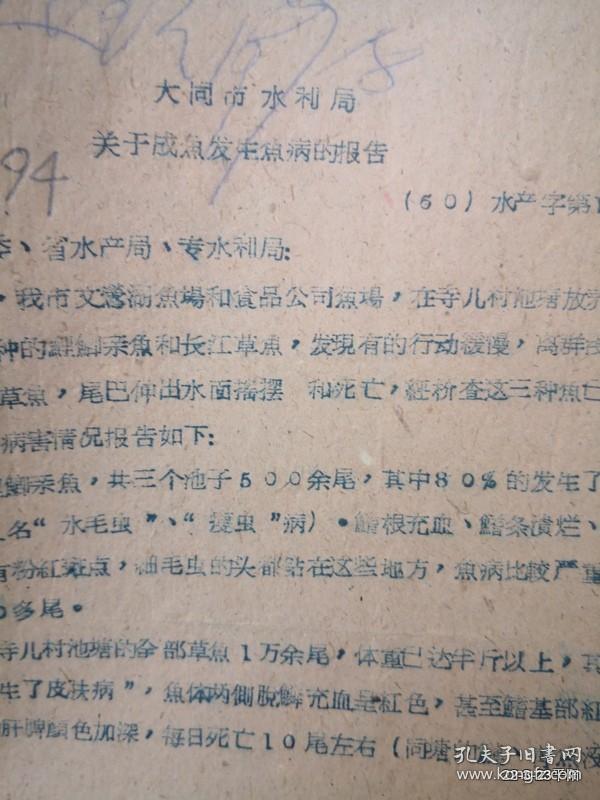 大同市水利局
关于成魚发生魚病的报告
94
(60)水产字第1
委、省水产局、专水利局:
，我市文瀛湖魚場和食品公司魚場，在寺儿村池塘放养
种的鯉鯽亲魚和长江草魚，发现有的行动缓慢，离群
草魚，尾巴伸出水面摇摆 和死亡，經检查这三种魚
病害情况报告如下:
鯽亲魚，共三个池子500余尾，其中80%的发生了
名“水毛虫”、“ 虫”病)。鰭根充血、鰭条溃烂、
有粉紅斑点，細毛虫的头都鉆在这些地方，魚病比較严重
0多尾。
寺儿村池塘的全部草魚1万余尾，体重已达半斤以上，其
生了皮肤病”，魚体两側脫鳞充血是紅色，甚至鰭基部紅
肝脾顏色加深，每日死亡10尾左右(同塘的
孔夫子旧书网
22-3-23